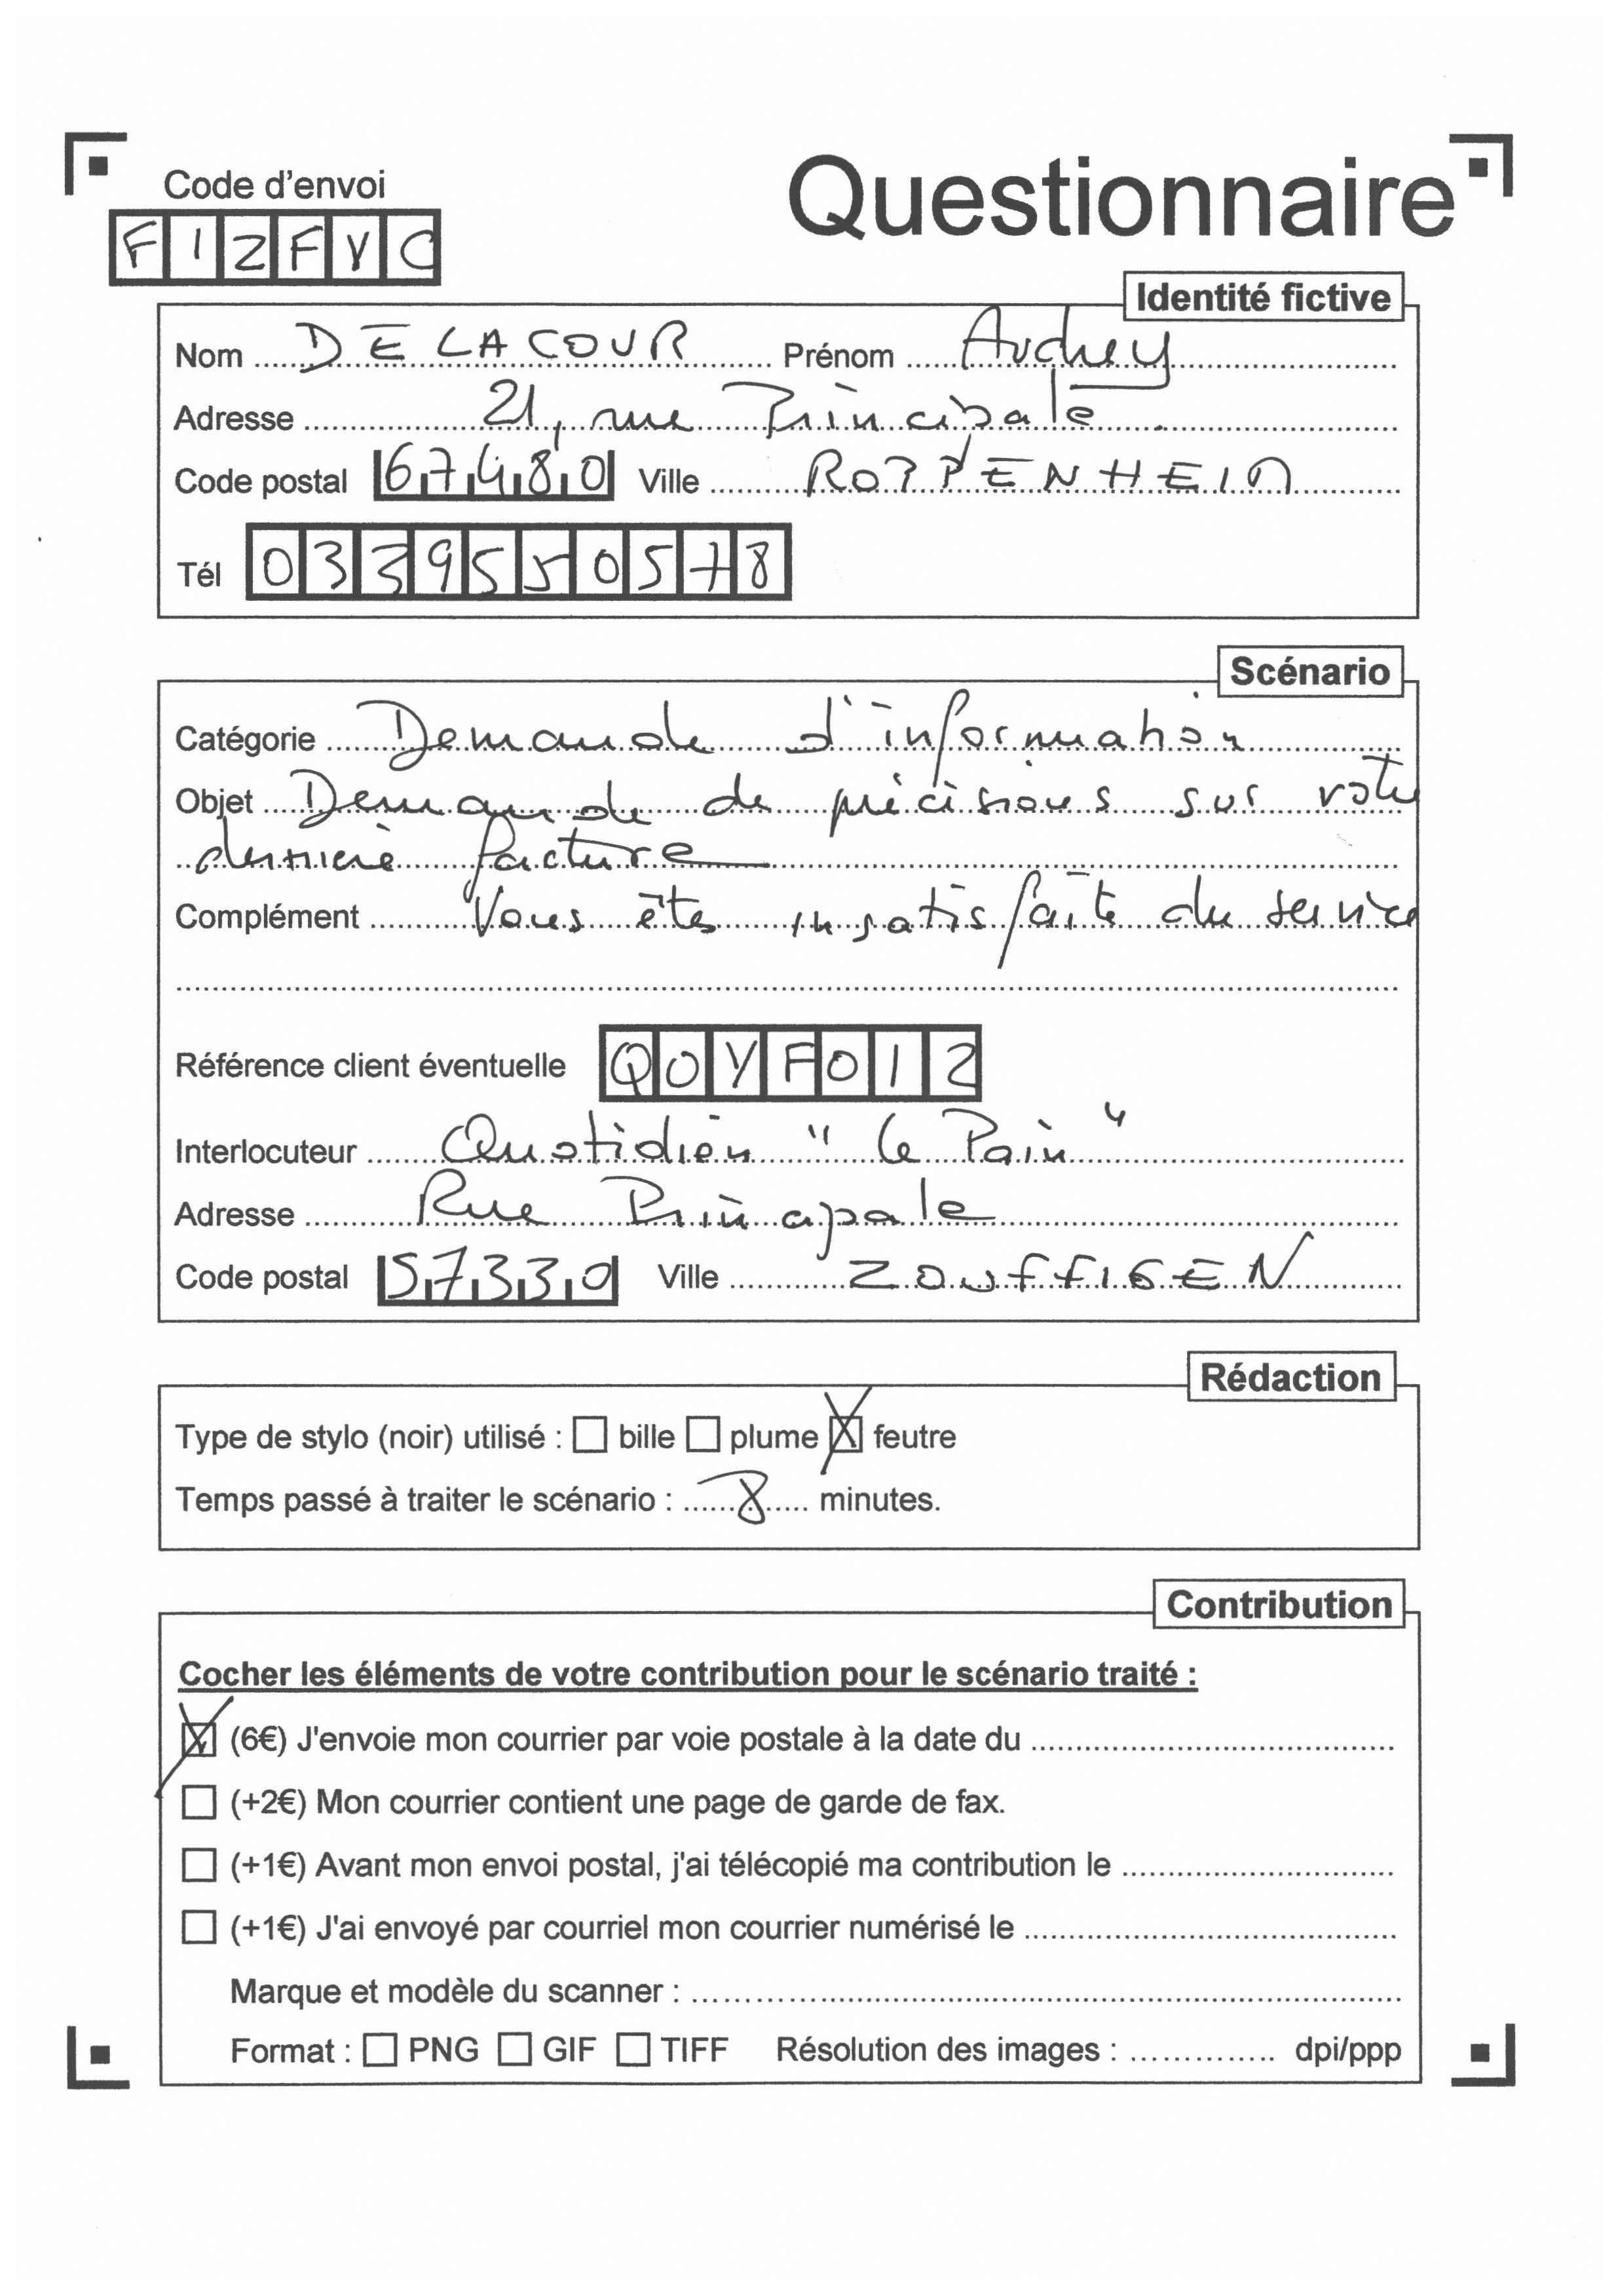 Code d'envoi
Questionnaire
F1ZFYC
Identité fictive
Nom DELACOUR Prénom Audrey
Adresse 21, rue Principale.
Code postal 67480 Ville ROPPENHEIM
Tél 0339550578
Scénario
Catégorie Demande d'information
Objet Demande de précisions sur votre
dernière facture
Complément Vous êtes insatisfaite du service
Référence client éventuelle QOYFO12
Interlocuteur Quotidien "Le Pain"
Adresse Rue Principale
Code postal 57330 Ville ZOUFFTGEN
Rédaction
Type de stylo (noir) utilisé : bille plume feutre
Temps passé à traiter le scénario : 8 minutes.
Contribution
Cocher les éléments de votre contribution pour le scénario traité :
(6€) J'envoie mon courrier par voie postale à la date du
(+2€) Mon courrier contient une page de garde de fax.
(+1€) Avant mon envoi postal, j'ai télécopié ma contribution le
(+1€) J'ai envoyé par courriel mon courrier numérisé le
Marque et modèle du scanner :
Format : PNG GIF TIFF Résolution des images : dpi/ppp